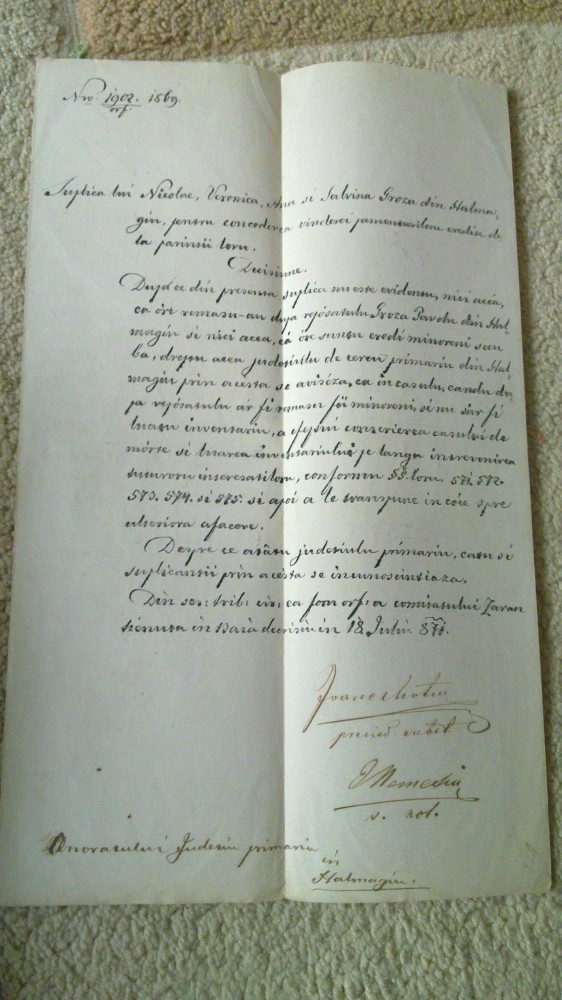 Nro. 1902. 1869.
orf.
Suplica lui Nicolae, Veronica, Ana si Salvina Groza din Halma,
giu, pentru concederea vinderei pamenturilem eredite de
la parintii loru.
Decisiune.
Dupa ce din presenta suplica nu este evidentu, nici acea,
ca ore remasu-au dupa repósatulu Groza Pavelu din Hal
magiu si nici acea, că óre suntu eredi minoreni seau
ba, dreptu acea judesiulu de cercu primariu din Hal,
magiu prin acésta se aviséza, ca in casulu, candu du,
pa repósatulu ár fi remasu fii minoreni, si nu sár fi
luatu inventariu, a efeptui conscrierea casului de
mórte si luarea inventariului pe langa intrevenirea
tuturoru interesatiloru, conformu §§. loru. 571. 572.
573. 574. si 575. si apoi a le transpune in cóce spre
ulteriora afacere.
Despre ce atâtu judesiulu primariu, catu si
suplicantii prin acésta se incunosintiaza.
Din sed: trib: civ: ca foru orf: a comitatului Zaran
tienuta in Baia de crisiu in 18 Juliu 871.
Ioane Motiu
presied. subst.
Nemesiu
s. not.
Onoratului Judesiu primariu
in
Halmagiu.